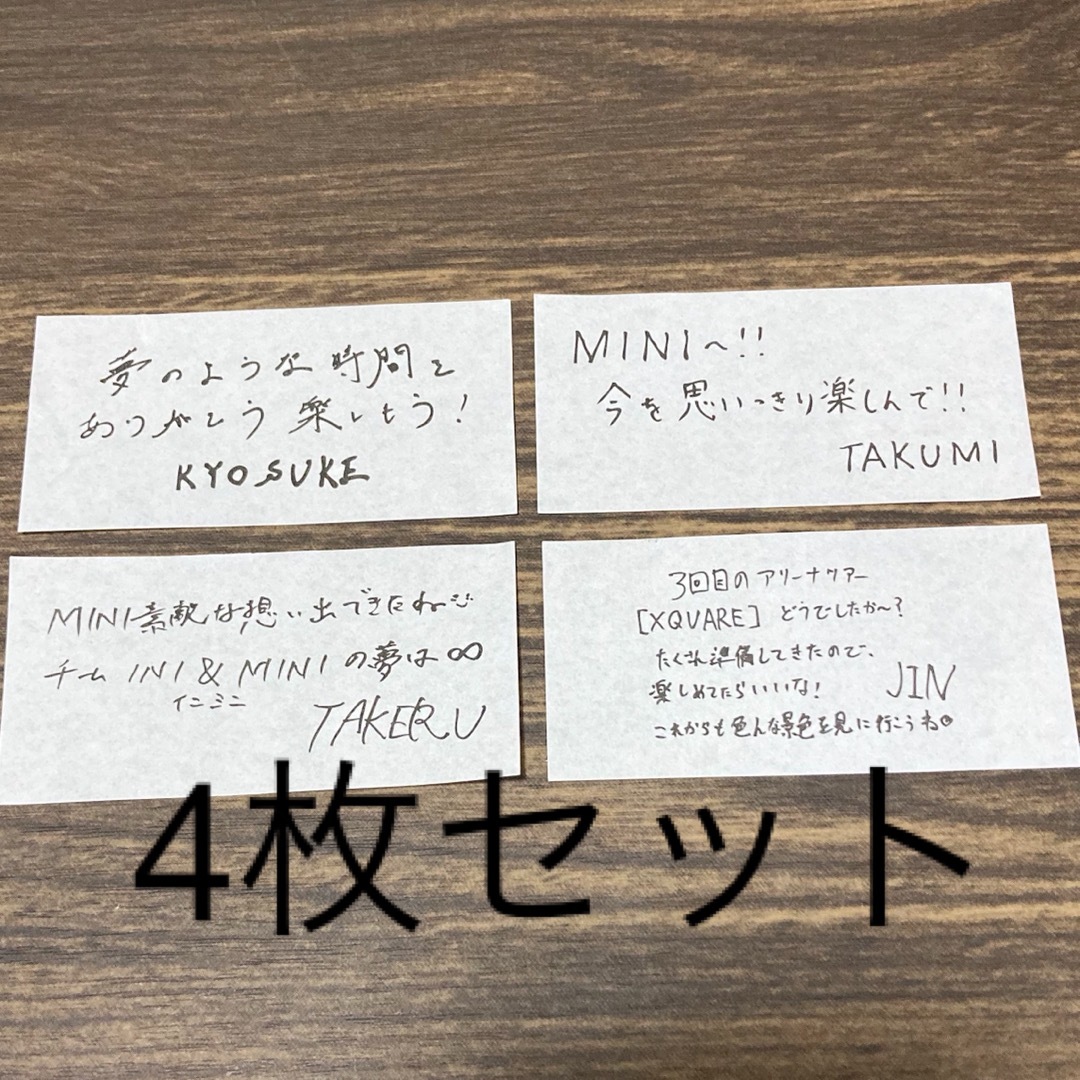 夢のような時間を
ありがとう 楽しもう!
KYOSUKE
MINI〜!!
今を思いっきり楽しんで!!
TAKUMI
MINI素敵な想い出できたね
チーム INI & MINI の夢は∞
イニミニ
TAKERU
3回目のアリーナツアー
[XQUARE] どうでしたか〜?
たくさん準備してきたので、
楽しめてたらいいな!
JIN
これからも色んな景色を見に行こうね
4枚セット